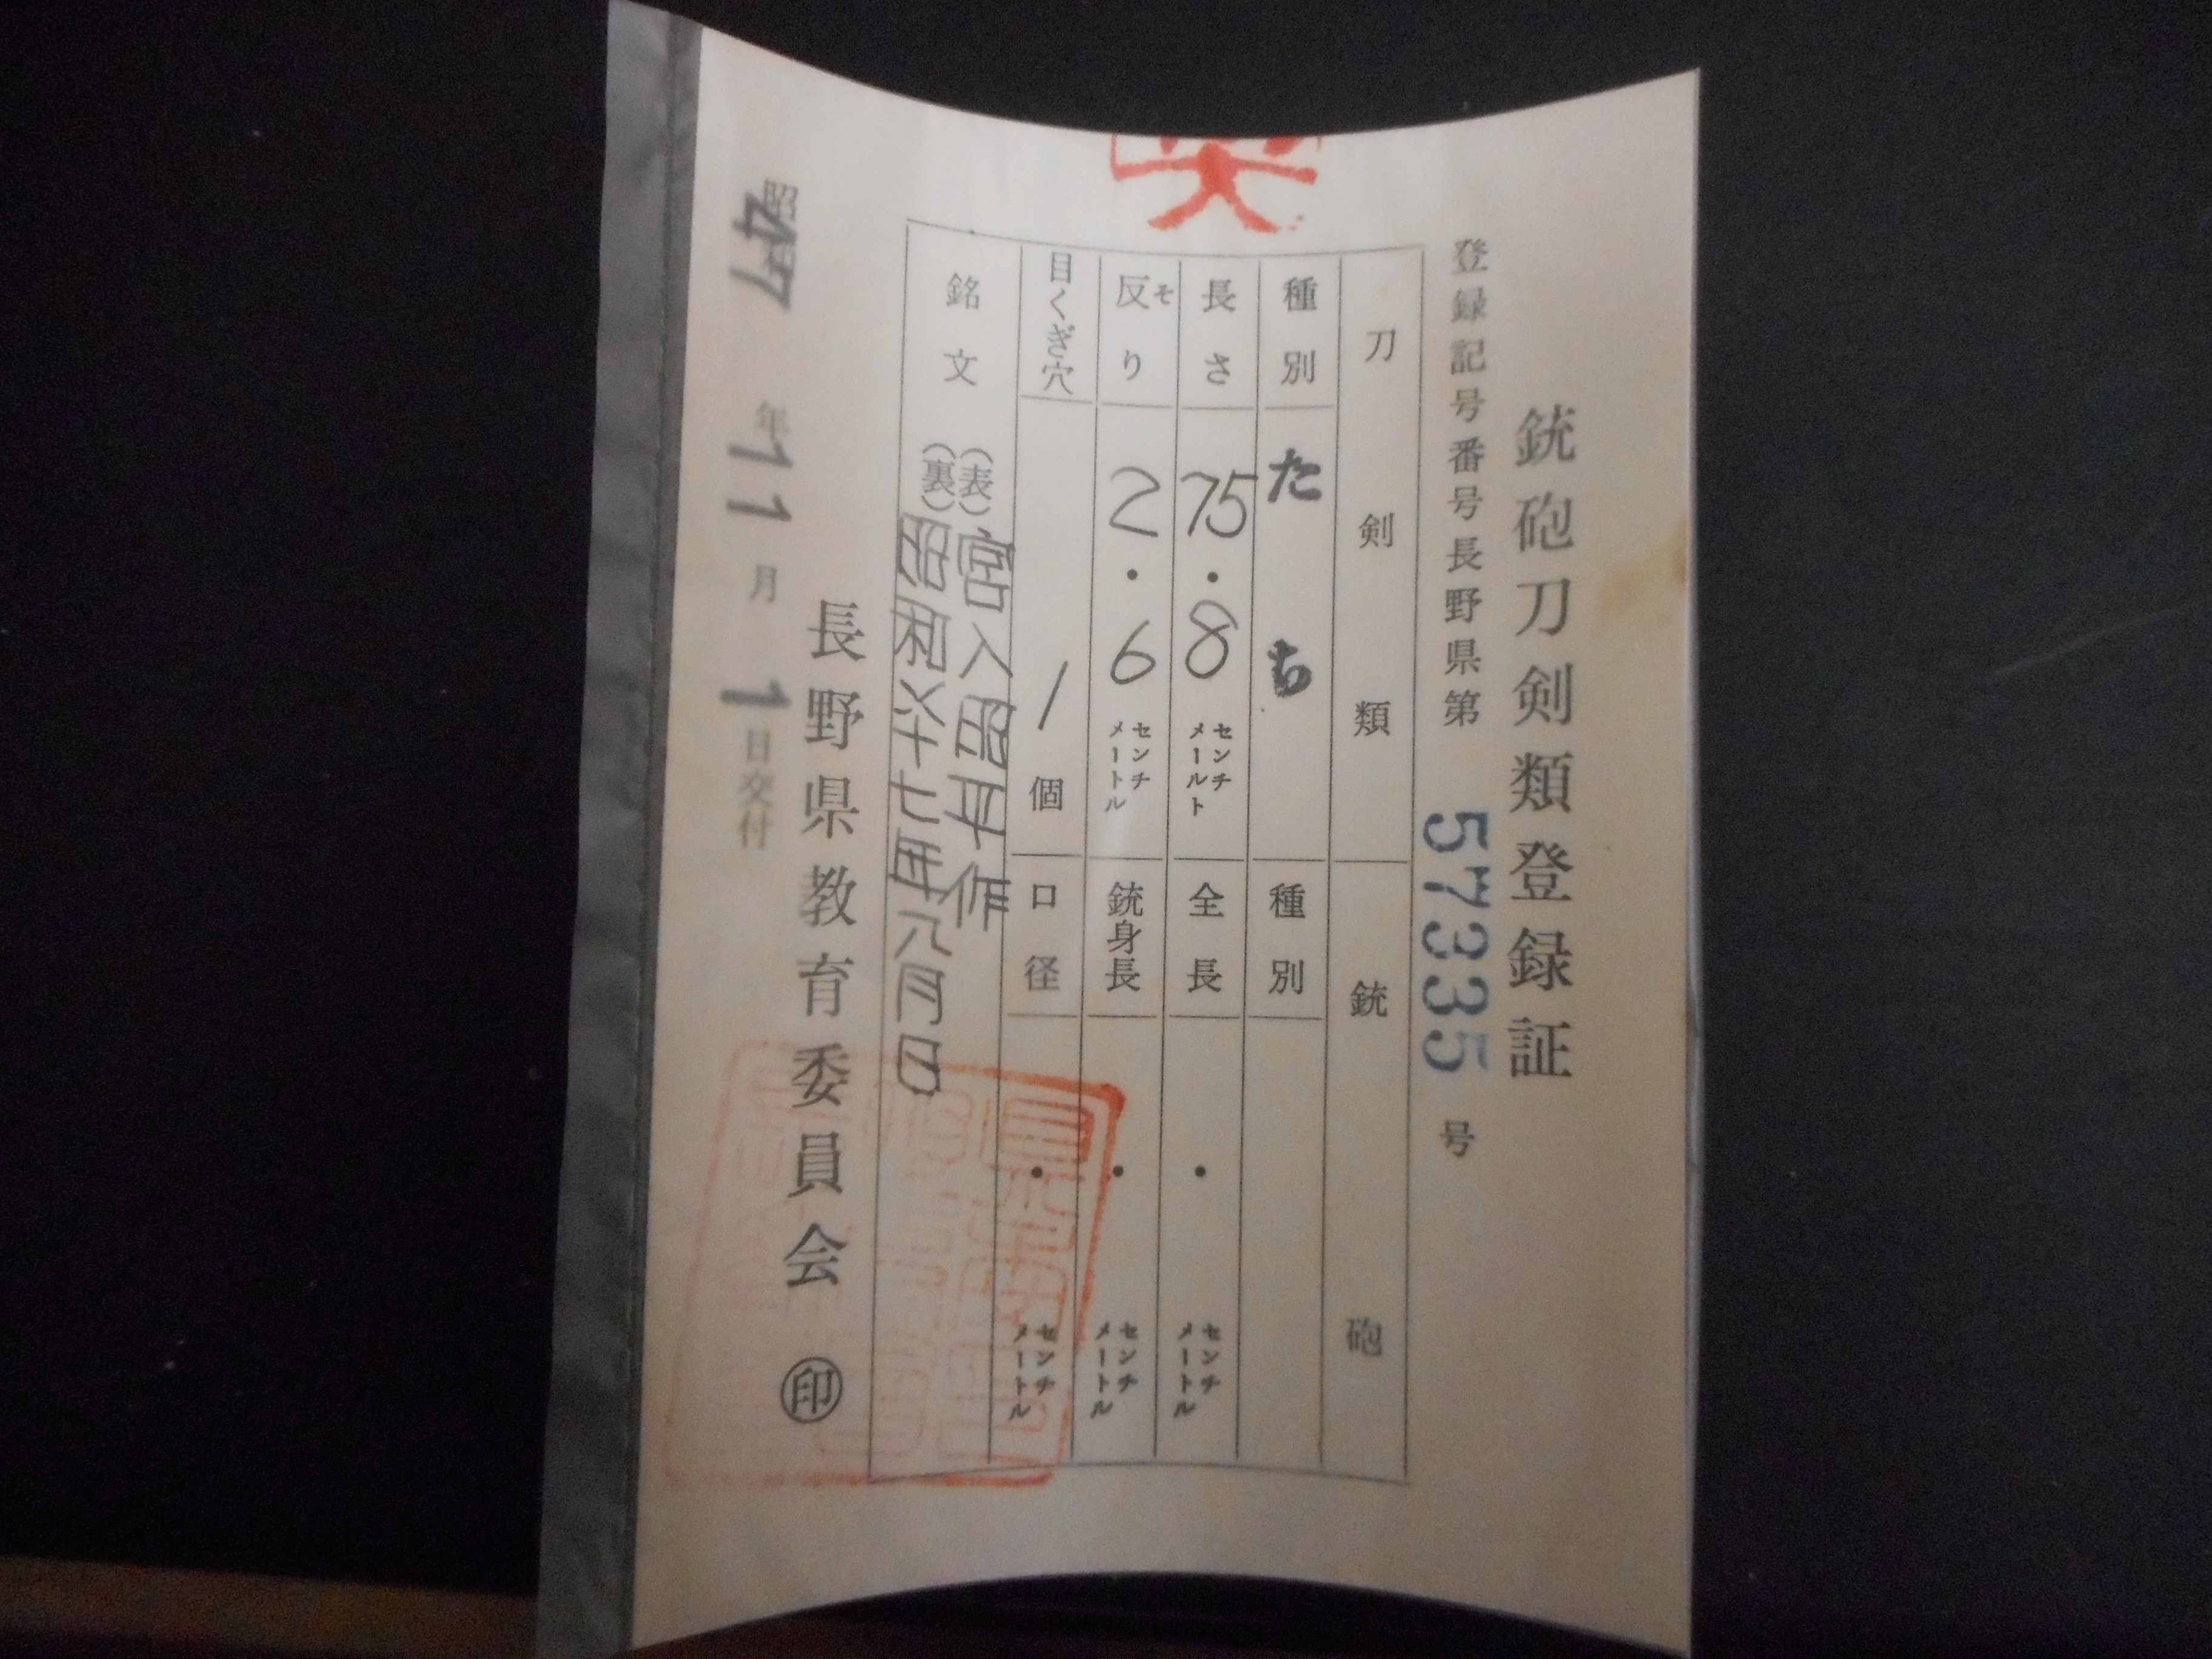 銃砲刀剣類登録証
登録記号番号長野県第 57335 号
刀剣類 銃砲
種別 たち 種別
長さ 75.8 センチメールト 全長 . センチメートル
反り そ 2.6 センチメートル 銃身長 . センチメートル
目くぎ穴 1 個 口径 . センチメートル
銘文 (表) 宮入昭平作
(裏) 昭和四十七年八月日
長野県教育委員会 ㊞
昭和 47 年 11 月 1 日交付